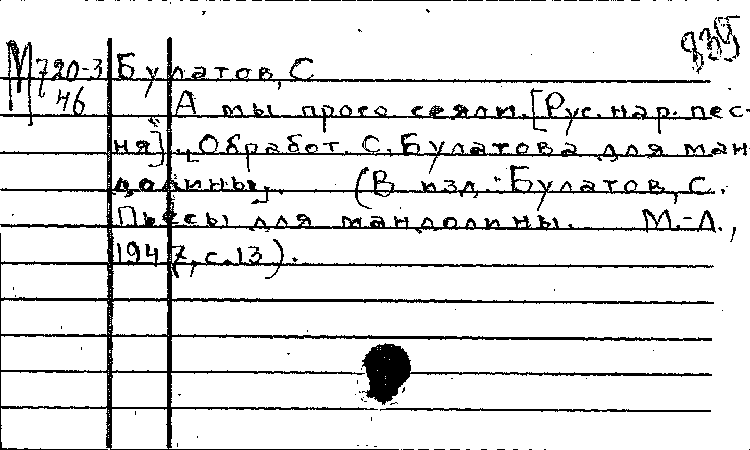 839
М 720-3 Булатов, С
46 А мы просо сеяли. [Рус. нар. пес-
ня]. [Обработ. С. Булатова для ман-
долины]. (В изд.: Булатов, С.
Пьесы для мандолины. М.-Л.,
1947, с. 13).